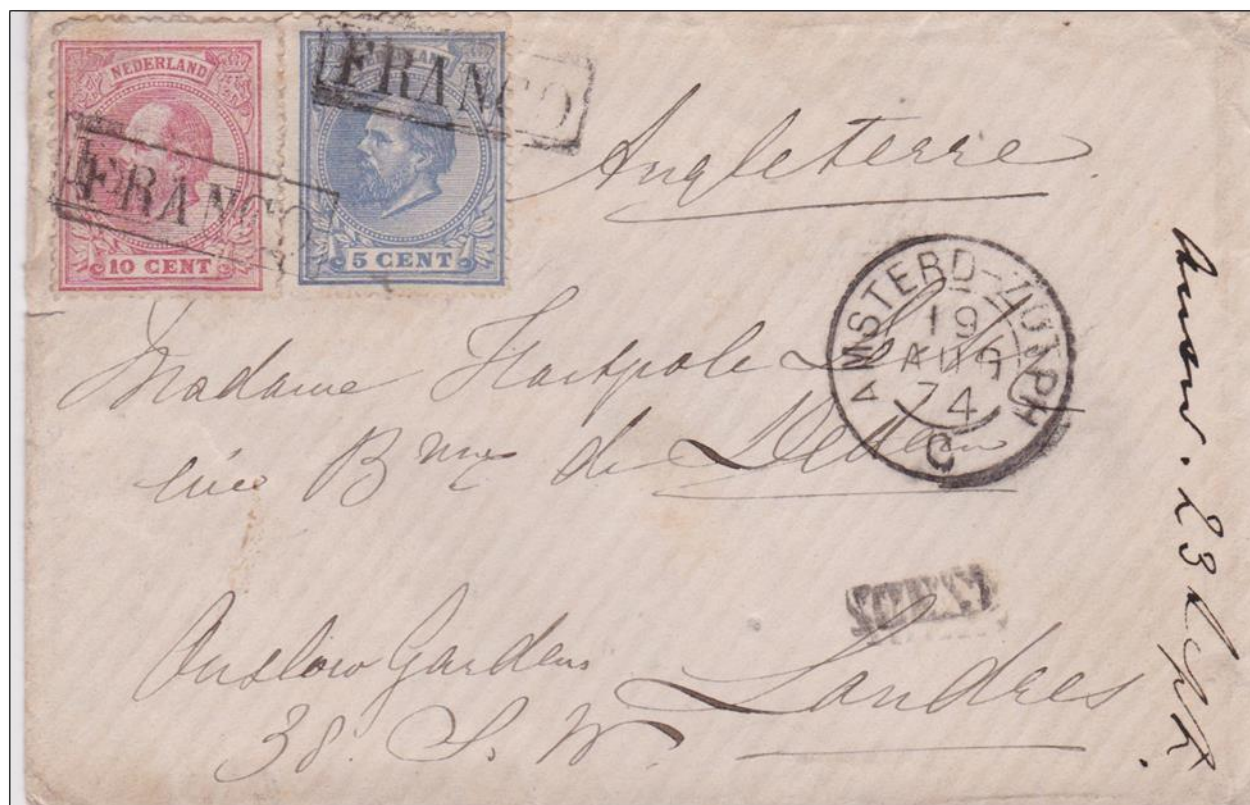 NEDERLAND
10 CENT
FRANCO
5 CENT
FRANCO
Angleterre.
AMSTERD-ZUTPH
19
AUG
74
C
Madame Hartpole
née B de Dedem
Onslow Gardens
38. S. W.
Londres